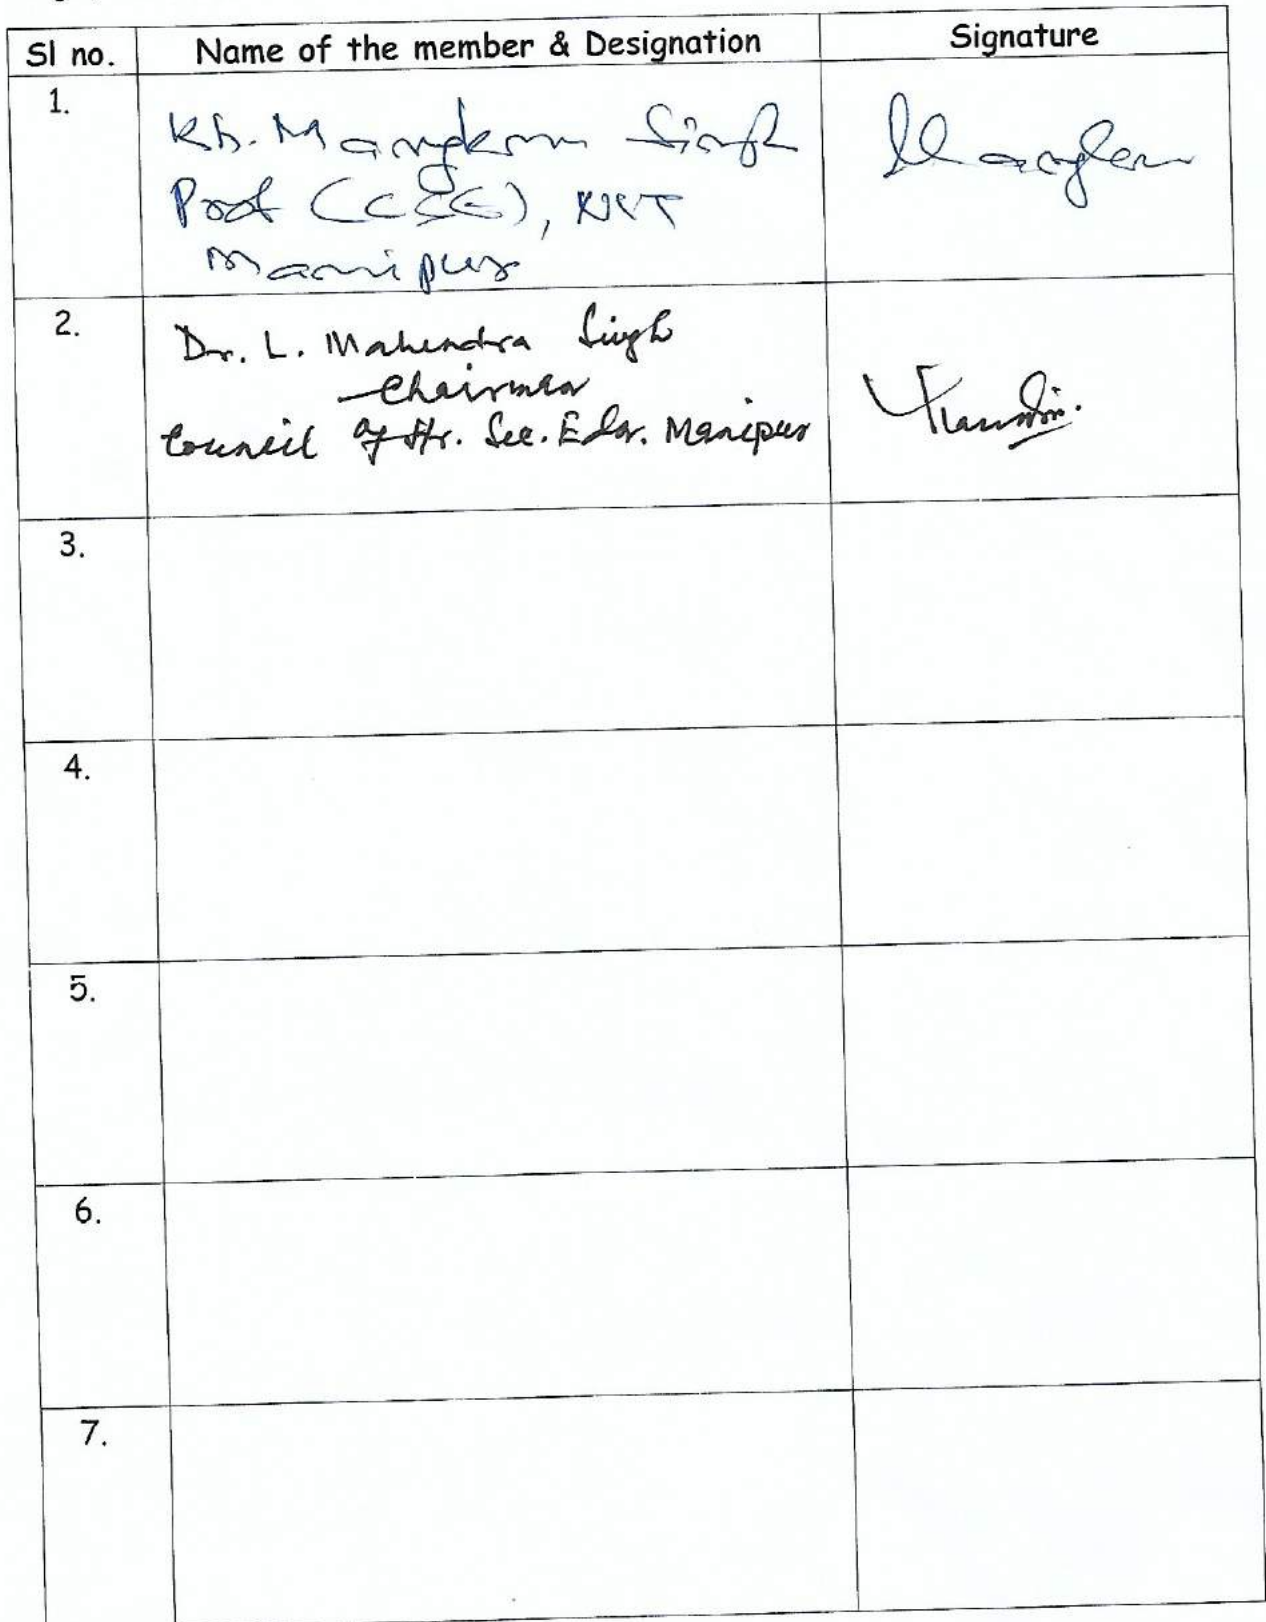 Sl no. Name of the member & Designation Signature
1.
Kh. Manglem Singh
Prof (CSE), NIT
Manipur
2.
Dr. L. Mahendra Singh
Chairman
Council of Hr. Sec. Edn. Manipur
3.
4.
5.
6.
7.